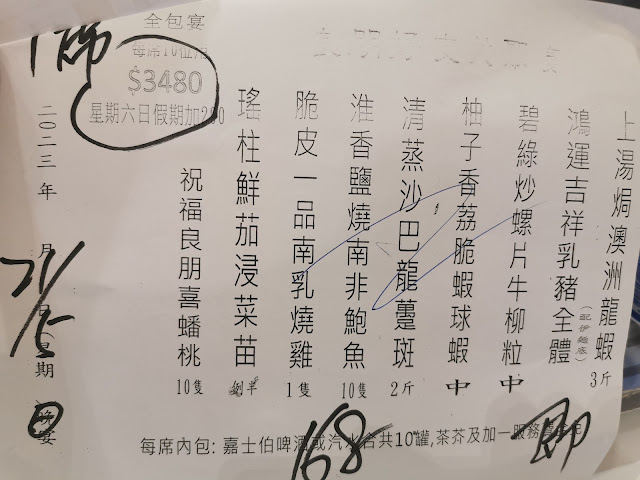 1席
全包宴
每席10位用
$3480
星期六日假期加200
上湯焗澳洲龍蝦 3斤
(配伊麵底)
鴻運吉祥乳豬全體
碧綠炒螺片牛柳粒 中
柚子香荔脆蝦球蝦 中
清蒸沙巴龍躉斑 2斤
淮香鹽燒南非鮑魚 10隻
脆皮一品南乳燒雞 1隻
瑤柱鮮茄浸菜苗
祝福良朋喜蟠桃 10隻
二○二三年 月 日(星期 晚宴
21/5
日
每席內包: 嘉士伯啤酒或汽水合共10罐,茶芥及加一服務
168
即